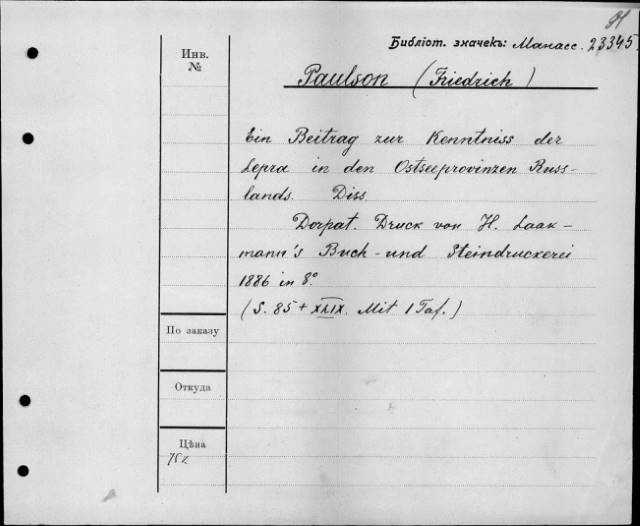 Библіот. значекъ: Манасс. 23345
Инв.
№
Paulson (Friedrich)
Ein Beitrag zur Kenntniss der
Lepra in den Ostseeprovinzen Russ-
lands. Diss.
Dorpat. Druck von H. Laak-
mann's Buch- und Steindruckerei
1886 in 8°
(S. 85 + XLIX. Mit 1 Taf.)
По заказу
Откуда
Цѣна